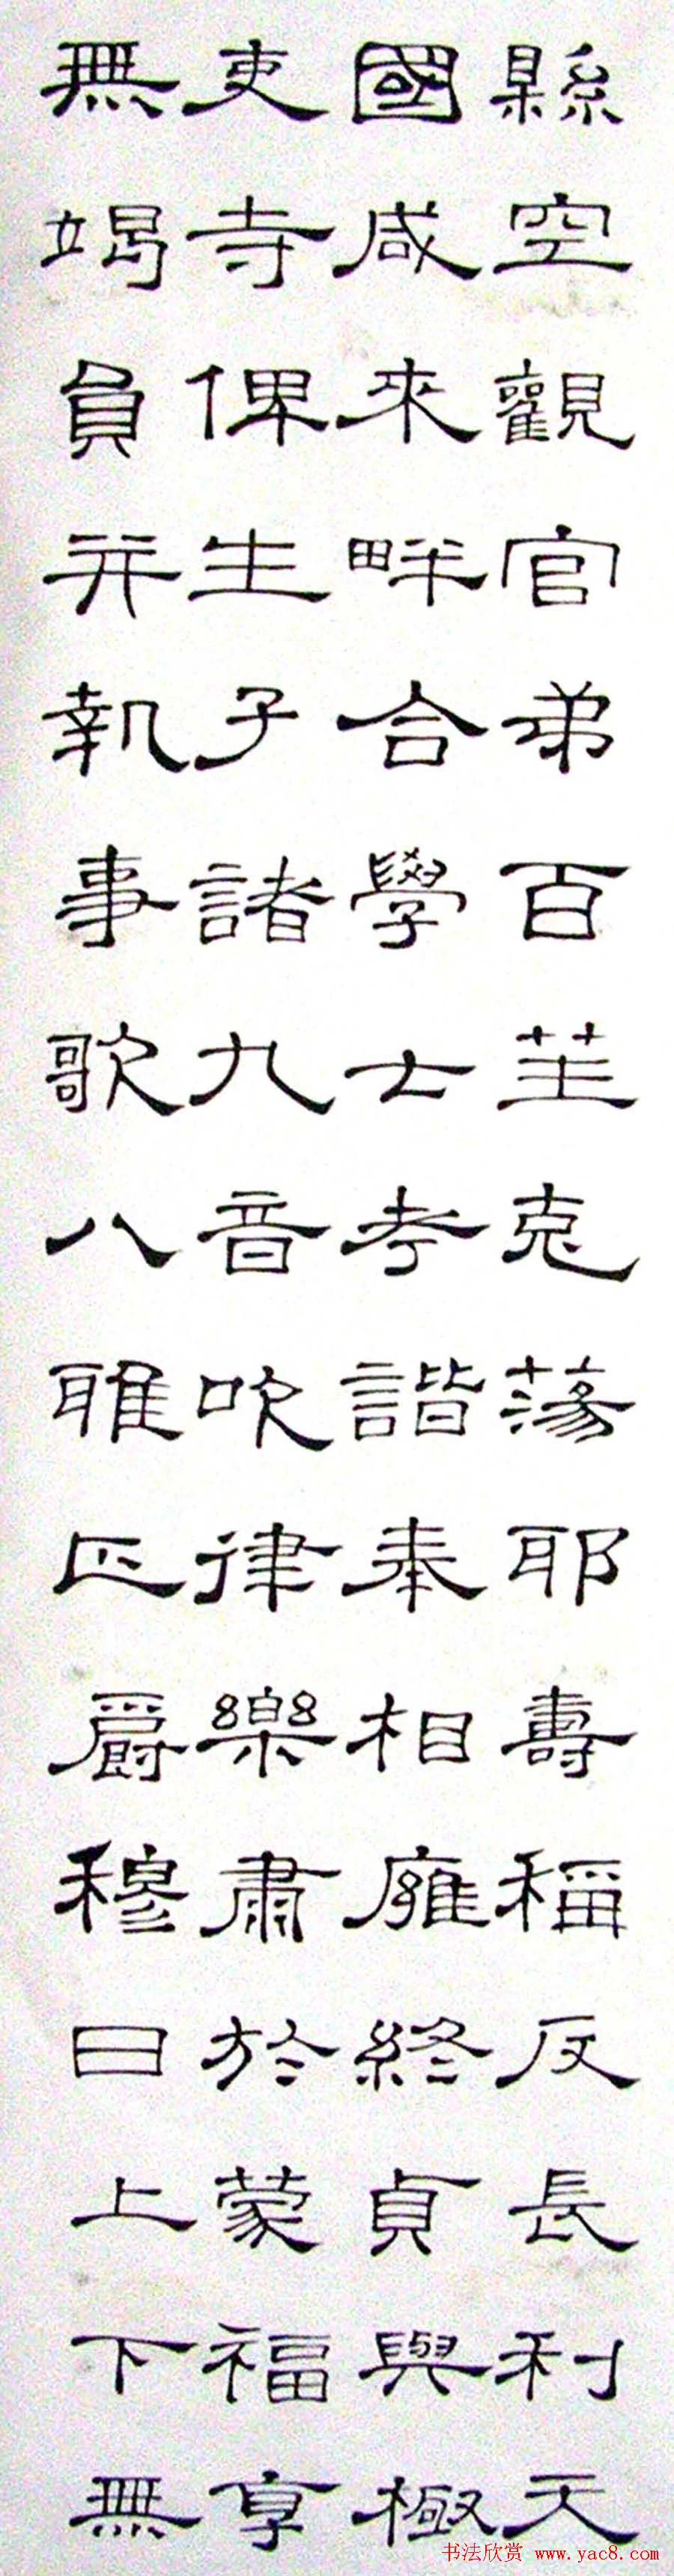 縣空觀官弟百苼克蕩耶壽稱反長利天
國咸來畔合學士考諧奉相廱終貞與極
吏寺俾生子諸九音吹律樂肅於蒙福享
無竭員并執事歌八雅正爵穆日上下無
书法欣赏 www.yac8.com